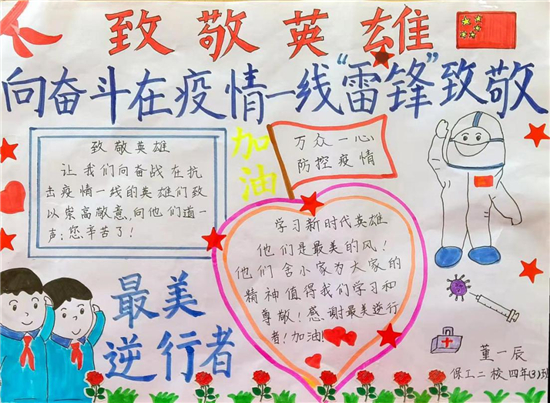 致敬英雄
向奋斗在疫情一线“雷锋”致敬
致敬英雄
让我们向奋战在抗
击疫情一线的英雄们致
以崇高敬意向他们道一
声:您辛苦了!
加油
万众一心
防控疫情
学习新时代英雄
他们是最美的风!
他们舍小家为大家的
精神值得我们学习和
尊敬!感谢最美逆行
者!加油!
最美
逆行者
董一辰
保工二校四年(3)班